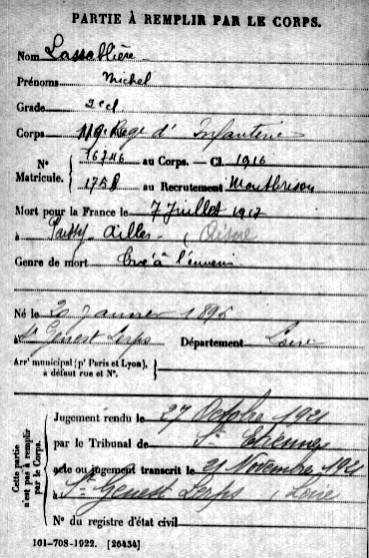 PARTIE À REMPLIR PAR LE CORPS.
Nom Lassablière
Prénoms Michel
Grade 2e cl
Corps 119e Reg d' Infanterie
N° Matricule. 16746 au Corps. — Cl 1916
1758 au Recrutement Montbrison
Mort pour la France le 7 Juillet 1917
à Paissy-Ailles (Aisne
Genre de mort tué à l'ennemi
Né le 29 Janvier 1896
à St Genest Lerps Département Loire
Arrt municipal (pr Paris et Lyon), à défaut rue et N°.
Cette partie n'est pas à remplir par le Corps.
Jugement rendu le 27 Octobre 1921
par le Tribunal de St Etienne
acte ou jugement transcrit le 21 Novembre 1921
à St Genest Lerps, Loire
N° du registre d'état civil
101-708-1922. [26434]